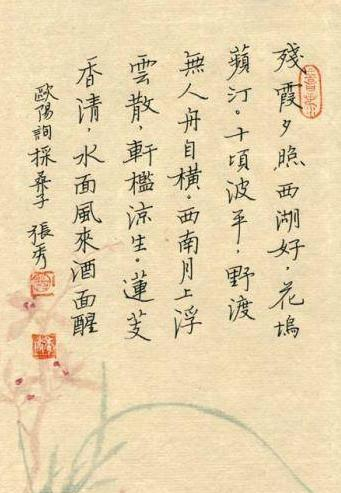 殘霞夕照西湖好，花塢
蘋汀。十頃波平，野渡
無人舟自橫。西南月上浮
雲散，軒檻涼生。蓮芰
香清，水面風來酒面醒
歐陽詢採桑子 張秀